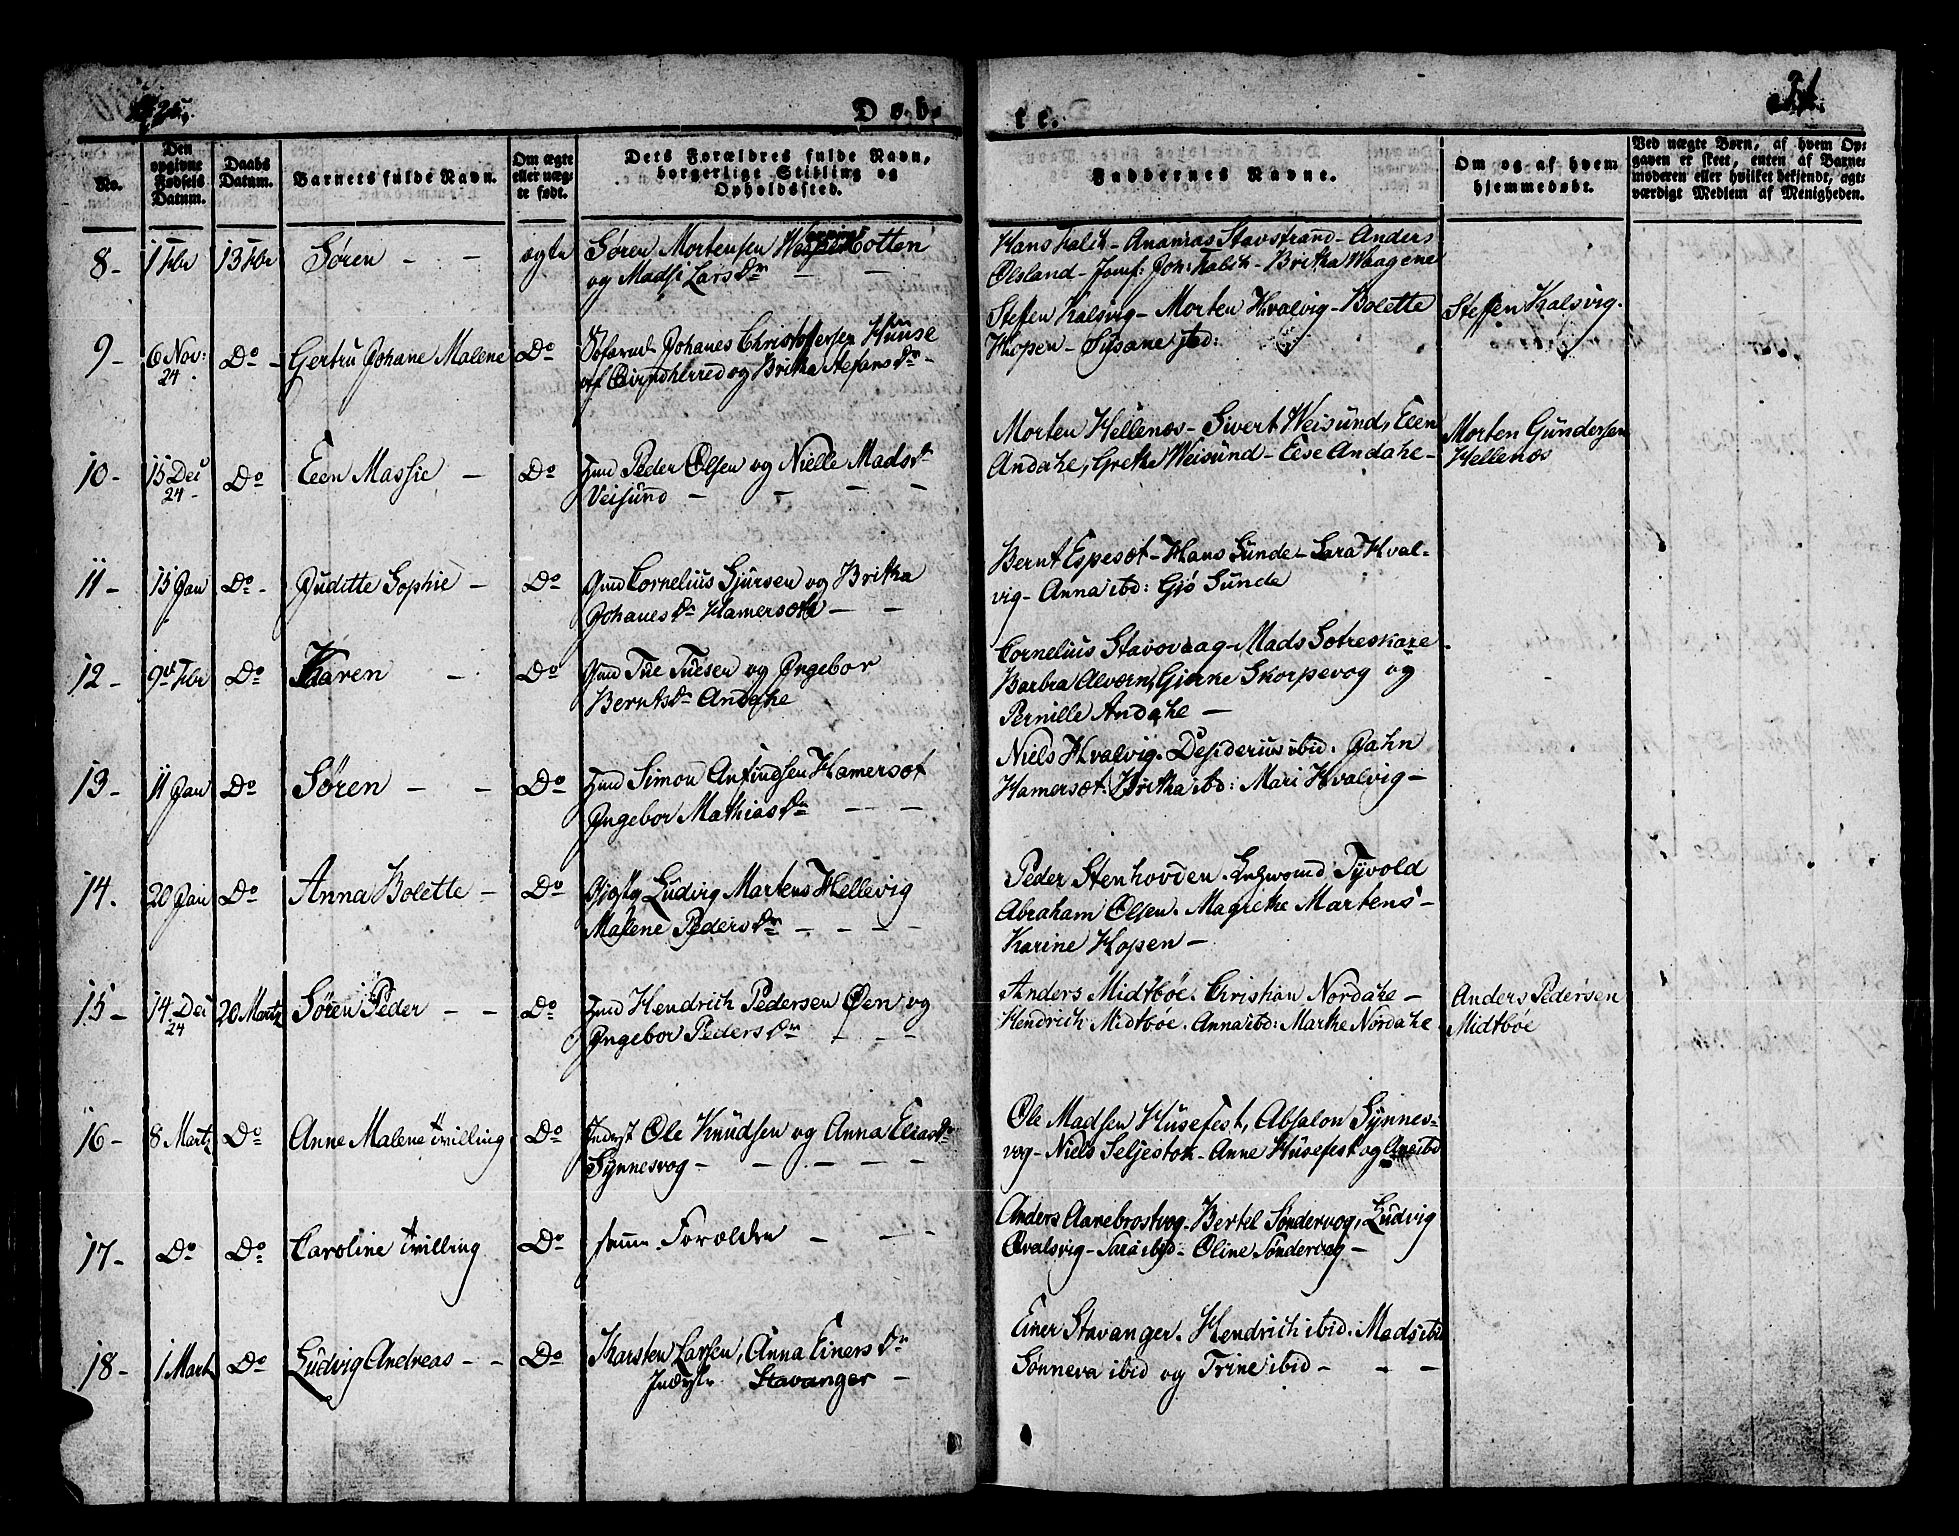 1825,
Døbte.
21.
No.
Den opgivne Fødsels Datum.
Daabs Datum.
Barnets fulde Navn.
Om ægte eller uægte født.
Dets Forældres fulde Navn, borgerlige Stilling og Opholdssted.
Faddernes Navne.
Om og af hvem hjemmedøbt.
Ved uægte Børn, af hvem Opgaven er skeet, enten af Barnemoderen eller hvilket bekjendt, agtværdigt Medlem af Menigheden.
8- 1 Fbr 13 Fbr Søren - - ægte Søren Mortensen Cotten
og Madsi Larsdr - -
Hans Falch - Ananias Stavstrand - Anders
Olsland - Jomf: Joh: Falch - Britha Waagene
9- 6 Nov: 24 Do - Gertru Johane Malene Do Johanes Christophersen Huuse
af Qvindherred og Britha Stefansdr -
Stefen Kalsvig - Morten Hvalvig - Bolette
Hopen - Susane ibd:
Steffen Kalsvig.
10- 15 Dec 24 Do Eeen Massie - Do Peder Olsen og Nielle Madsdr
Veisund - - - -
Morten Hellenæs - Sivert Weisund, Eeen
Andahe, Grethe Weisund - Eese Andahe -
Morten Gundersen
Hellenæs
11- 15 Jan Do - Juditte Sophie - Do Cornelius Sjursen og Britha
Johanesdr Hamersæt - -
Bernt Espesæt - Hans Sunde - Sara Hval-
vig - Anna ibd: Gjø Sunde
12- 9de Fbr Do Karen - Do Tue Tuesen og Ingebor
Berntsdr Andahe
Cornelius Stavovaag - Mads Sotreskare -
Barbra Alvøren, Gjerke Skorpevog og
Pernille Andahe -
13- 11 Jan Do Søren - - Do Simon Anfindsen Hamersæt
Ingebor Mathiasdr - -
Niels Hvalvig. Desiderius ibid: Jahn
Hamersæt. Britha ibd: Mari Hvalvig -
14. 20 Jan Do Anna Bolette - Do Ludvig Martens Hellevig
Malene Pedersdr - - -
Peder Stenhovden. Tyvold
Abraham Olsen. Magrethe Martens -
Karine Hopen -
15- 14 Dec 24 20 Martz Søren Peder - - Do Hendrich Pedersen Øen og
Ingebor Pedersdr - - -
Anders Midtbøe. Christian Nordahe -
Hendrich Midtbøe. Anna ibd: Marthe Nordahe
Anders Pedersen
Midtbøe
16- 8 Martz Do Anne Malene Tvilling Do Inderst Ole Knudsen og Anna Eliasdr
Synnesvog - - - -
Ole Madsen Husefest, Absalon Synnes-
vog - Niels Seljestok - Anne Husefest og Ane ibd
17- Do Do Caroline Tvilling Do samme Forældre - - -
Anders Aarebrotsvog - Bertel Søndervog, Ludvig
Qvalsvig - Sara ibid - Oline Søndervog -
18- 1 Mart Do Ludvig Andreas - - Do Karsten Larsen, Anna Einersdr
Inderst Stavanger -
Einer Stavanger. Hendrich ibid. Mads ibd
Sønneva ibid og Trine ibid - - -